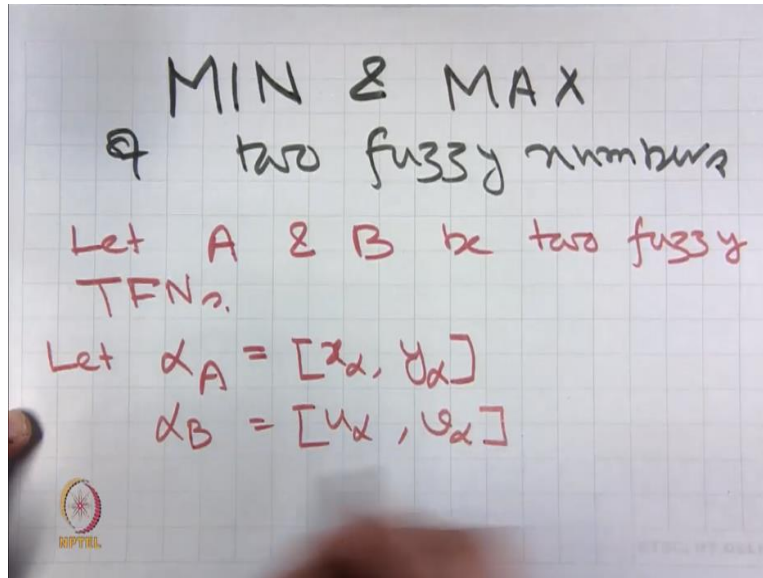 MIN & MAX
of two fuzzy numbers
Let A & B be two fuzzy
TFNs.
Let αA = [xα, yα]
αB = [uα, vα]
NPTEL